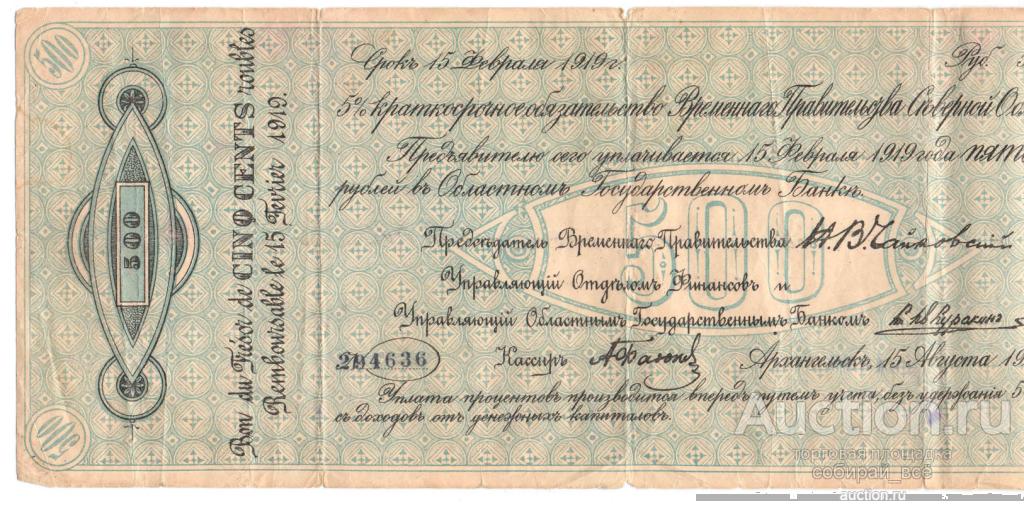 500
Bon du Trésor de CINQ CENTS roubles
Remboursable le 15 Fevrier 1919.
500
Срокъ 15 Февраля 1919 г. Руб.
5% краткосрочное обязательство Временнаго Правительства Северной Об
Предъявителю сего уплачивается 15 Февраля 1919 года пять
рублей въ Областномъ Государственномъ Банкѣ.
500
Председатель Временнаго Правительства Н. В. Чайковскій
Управляющій Отдѣломъ Финансовъ и
Управляющій Областнымъ Государственнымъ Банкомъ
294636 Кассиръ Архангельскъ, 15 Августа 19
Уплата процентовъ производится впередъ путемъ учета, безъ удержанія 5
съ доходовъ отъ денежныхъ капиталовъ.
500
Auction.ru
торговая площадка
собирай_всё
auction.ru